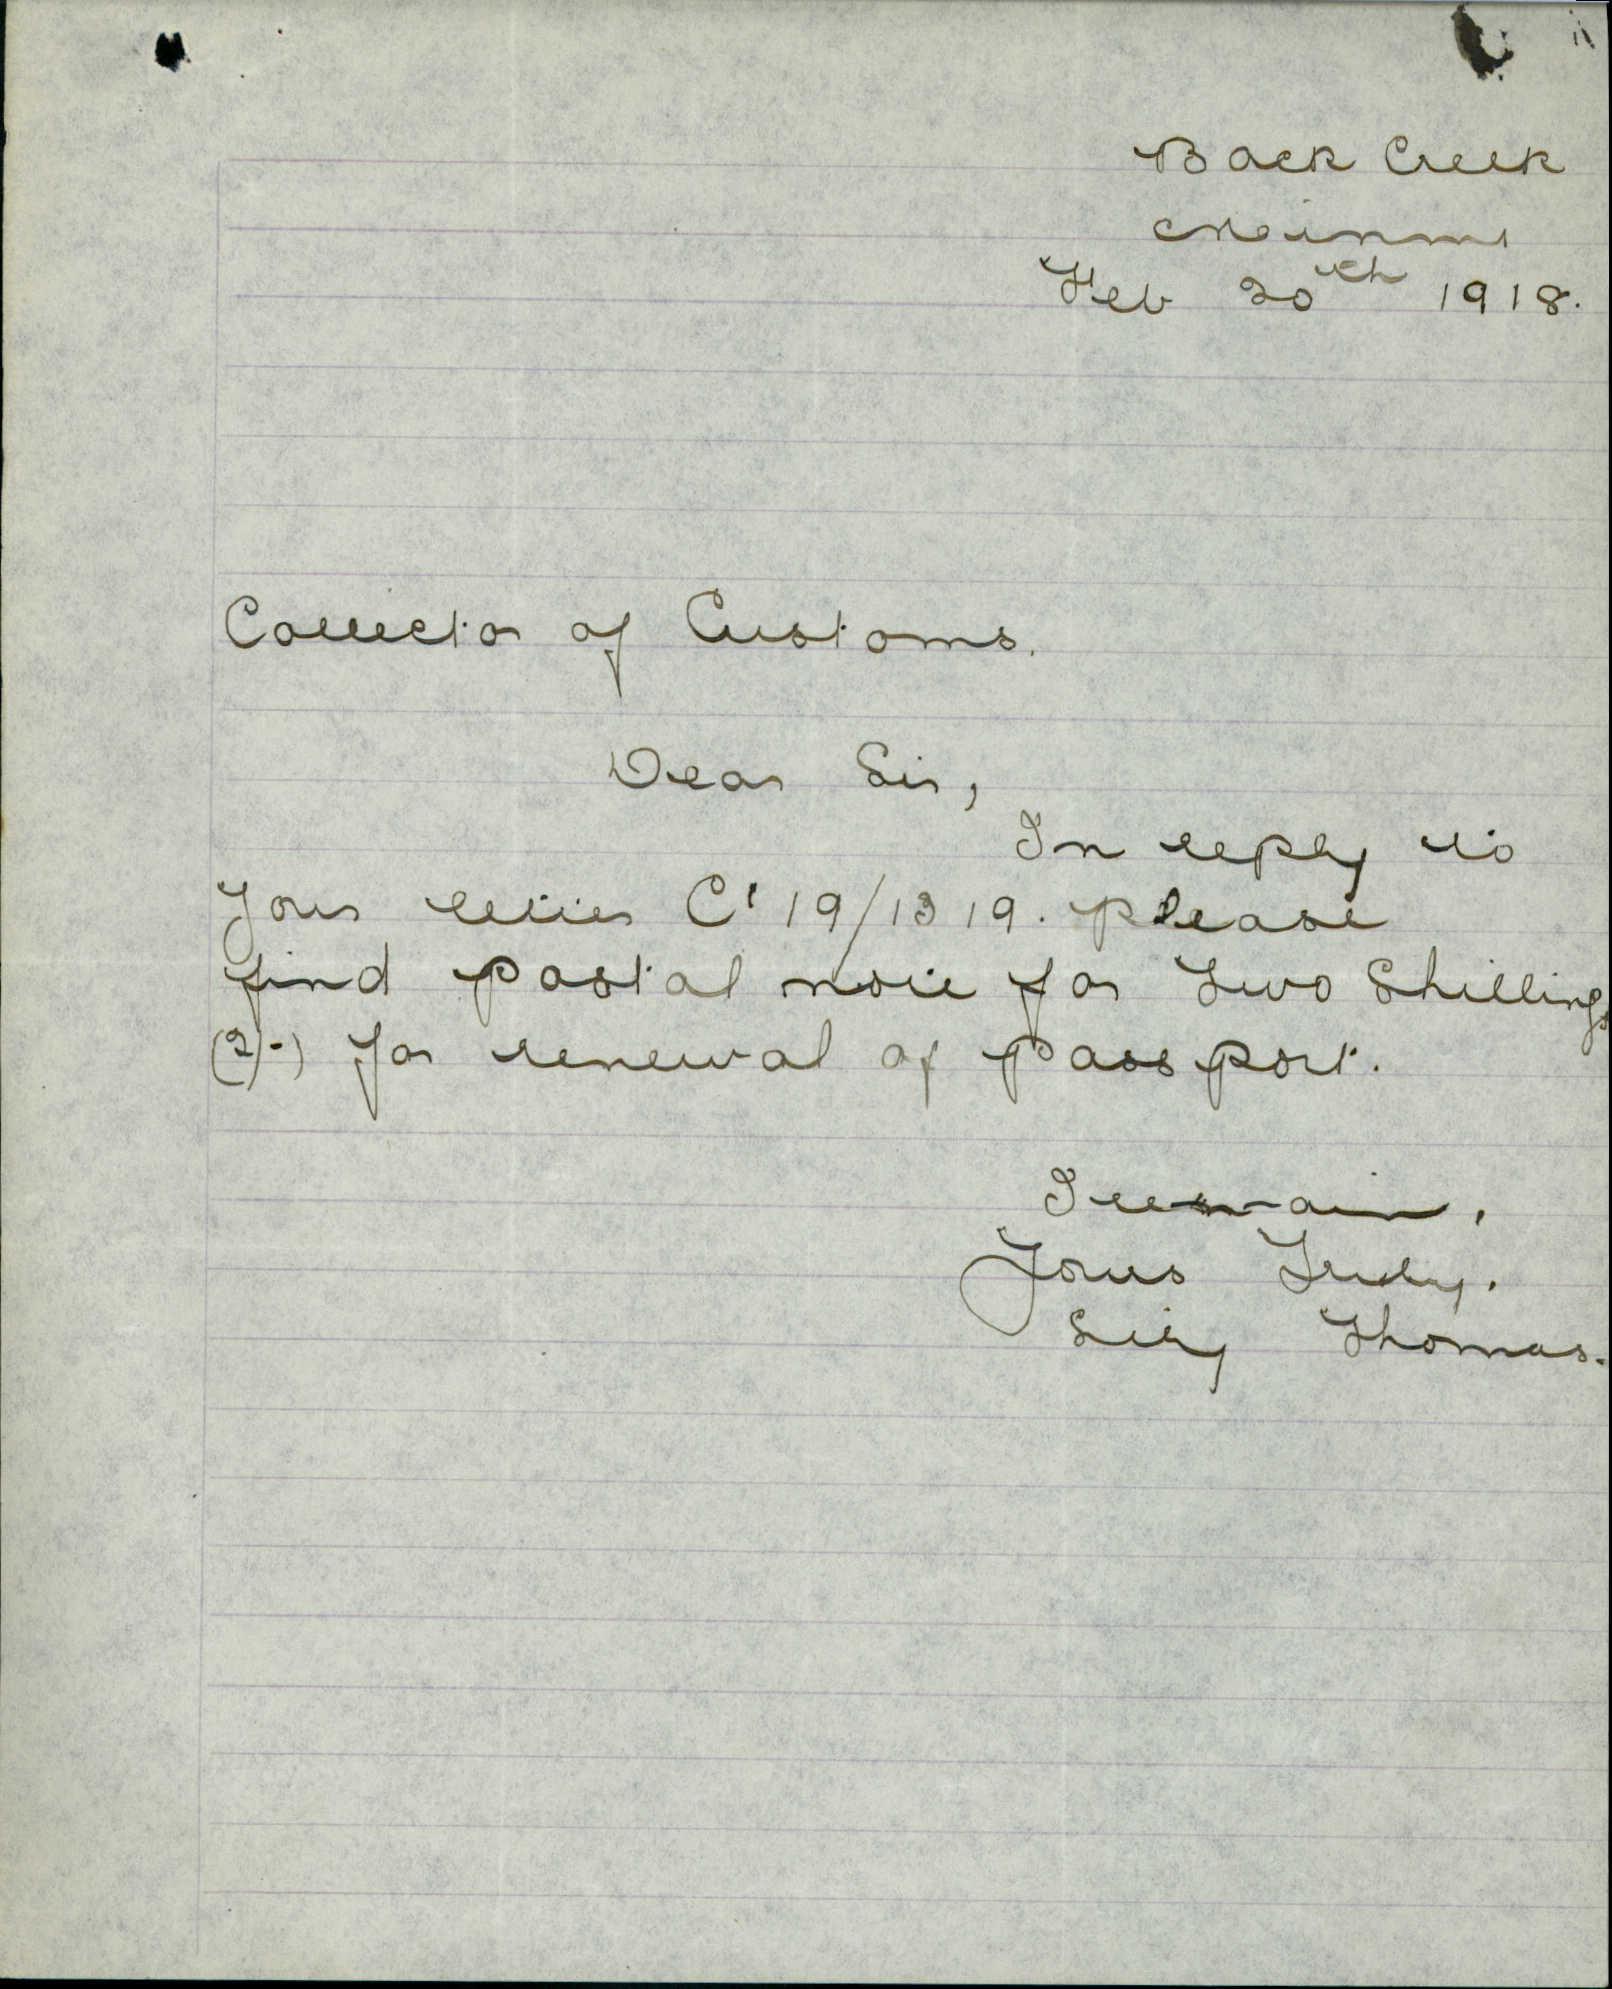 Back Creek
Feb 20th 1918.
Collector of Customs.
Dear Sir,
In reply to
your letter C' 19/1319. please
find postal note for Two Shillings
(2/-) for renewal of Passport.
I remain,
Yours Truly.
Lily Thomas.